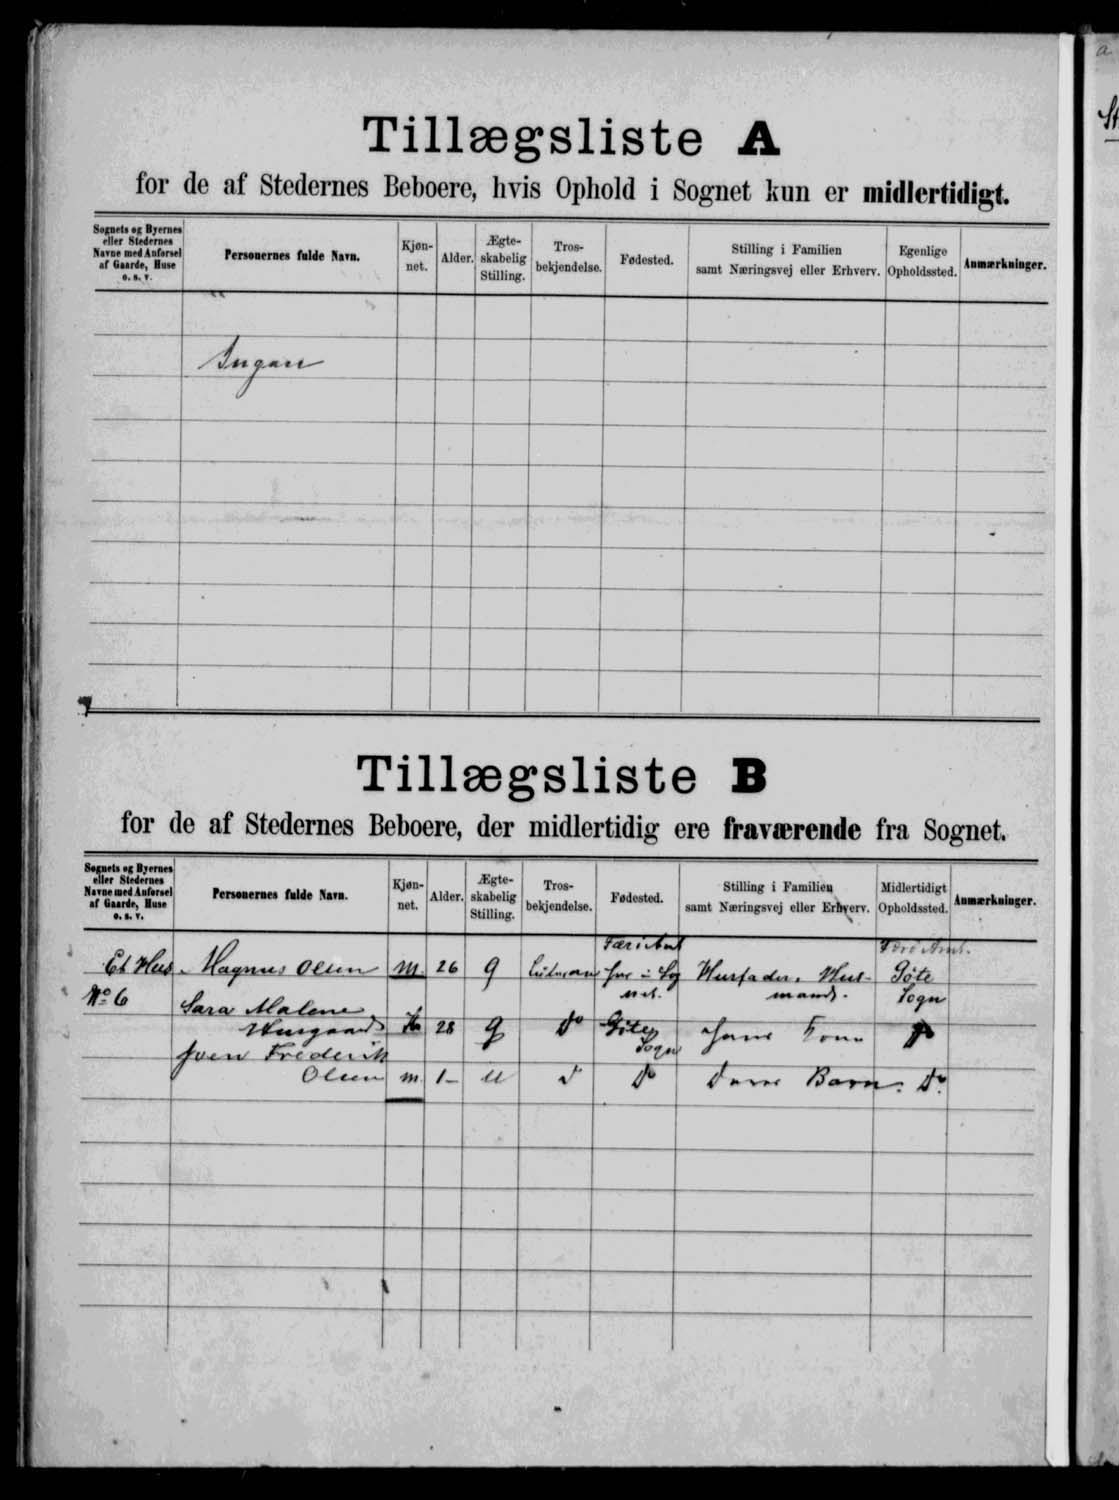 Tillægsliste A
for de af Stedernes Beboere, hvis Ophold i Sognet kun er midlertidigt.
Sognets og Byernes eller Stedernes Navne med Anførsel af Gaarde, Huse o. s. v. Personernes fulde Navn. Kjøn-net. Alder. Ægte-skabelig Stilling. Tros-bekjendelse. Fødested. Stilling i Familien samt Næringsvej eller Erhverv. Egenlige Opholdssted. Anmærkninger.
Ingen
Tillægsliste B
for de af Stedernes Beboere, der midlertidig ere fraværende fra Sognet.
Sognets og Byernes eller Stedernes Navne med Anførsel af Gaarde, Huse o. s. v. Personernes fulde Navn. Kjøn-net. Alder. Ægte-skabelig Stilling. Tros-bekjendelse. Fødested. Stilling i Familien samt Næringsvej eller Erhverv. Midlertidigt Opholdssted. Anmærkninger.
Et Hus Magnus Olsen M. 26 g Husfader. Hus- Göte
No 6 mand. Sogn
Sara Malene
28 g Do Göte Do
Sogn
Frederik
Olsen m. 1 u Do Do Barn. Do.